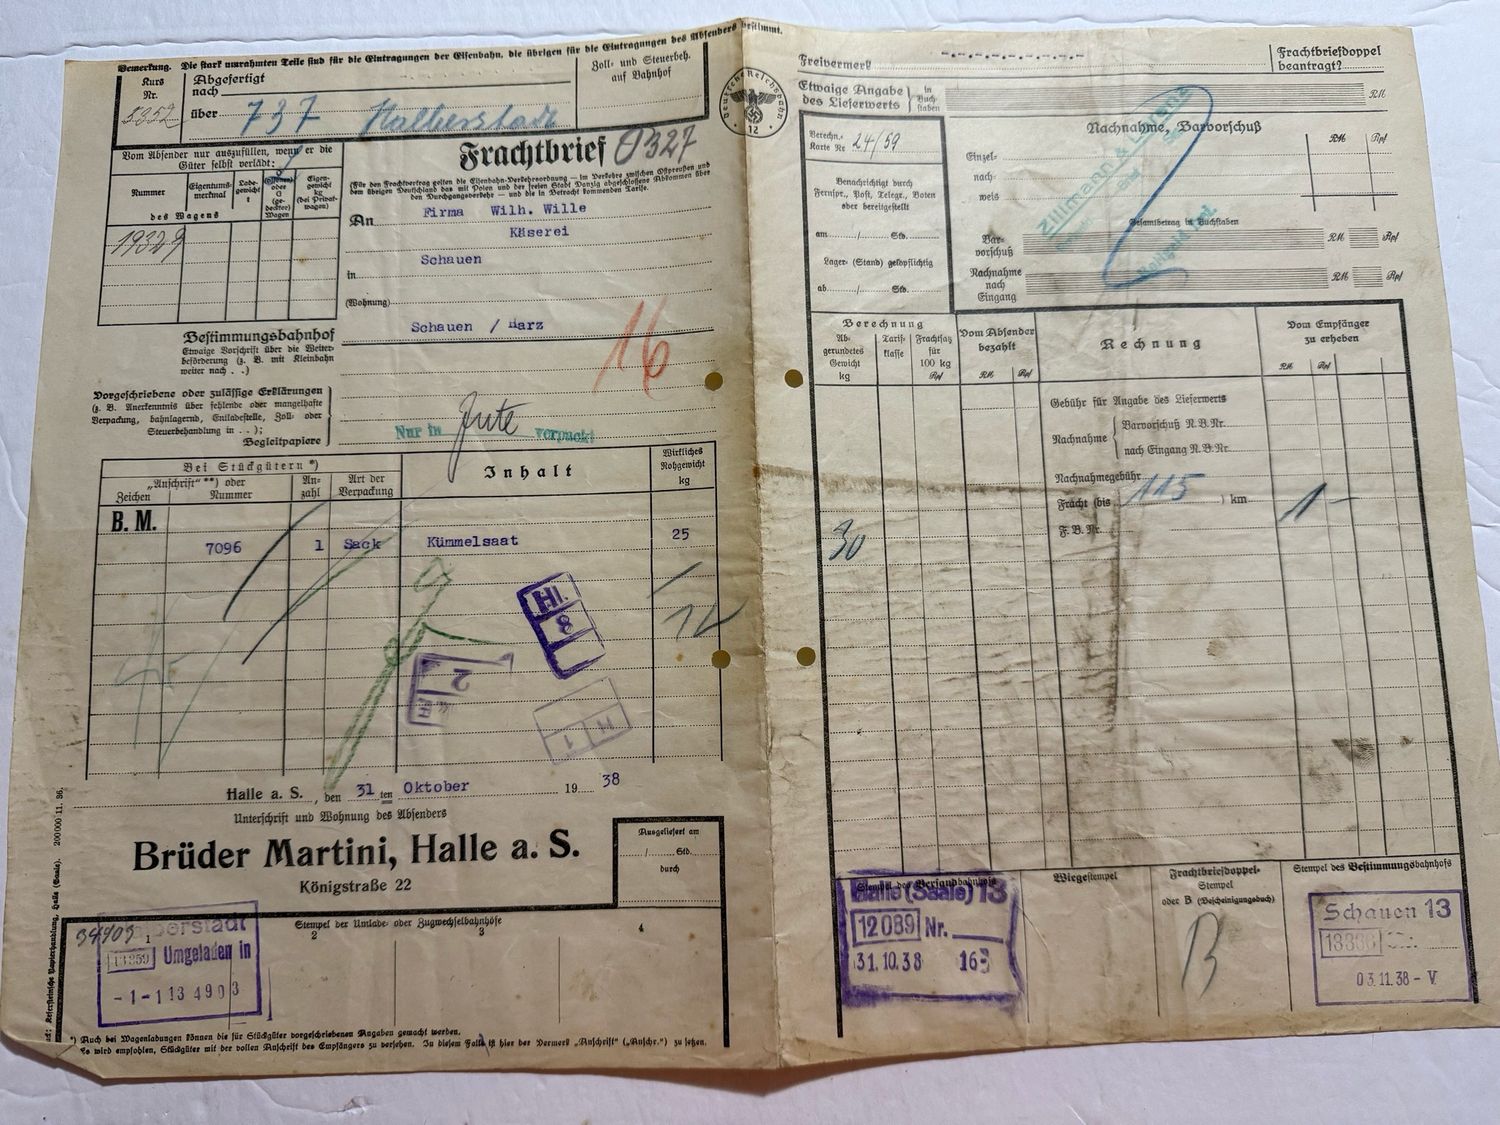 Bemerkung. Die stark umrahmten Teile sind für die Eintragungen der Eisenbahn, die übrigen für die Eintragungen des Absenders bestimmt.
Kurs
Nr.
5352
Abgefertigt
nach
über 737 Halberstadt
Zoll- und Steuerbeh.
auf Bahnhof
Deutsche Reichsbahn
12
Vom Absender nur auszufüllen, wenn er die
Güter selbst verlädt:
Nummer
Eigentums-
merkmal
Lade-
gewicht
t
oder
G
(ge-
deckter)
Wagen
Eigen-
gewicht
kg
(bei Privat-
wagen)
des Wagens
19329
Frachtbrief 0327
(Für den Frachtvertrag gelten die Eisenbahn-Verkehrsordnung — im Verkehr zwischen Ostpreußen und
dem übrigen Deutschland das mit Polen und der freien Stadt Danzig abgeschlossene Abkommen über
den Durchgangsverkehr — und die in Betracht kommenden Tarife.
An Firma Wilh. Wille
Käserei
Schauen
in
(Wohnung)
Bestimmungsbahnhof
Etwaige Vorschrift über die Weiter-
beförderung (z. B. mit Kleinbahn
weiter nach . .)
Schauen / Harz
16
Vorgeschriebene oder zulässige Erklärungen
(z. B. Anerkenntnis über fehlende oder mangelhafte
Verpackung, bahnlagernd, Entladestelle, Zoll- oder
Steuerbehandlung in . . );
Begleitpapiere
Nur in Jute verpackt
Bei Stückgütern *)
„Anschrift“ **) oder
Zeichen Nummer
An-
zahl
Art der
Verpackung
Inhalt
Wirkliches
Rohgewicht
kg
B. M.
7096 1 Sack Kümmelsaat 25
Hl.
8
2
H 1
Halle a. S., den 31 ten Oktober 19 38
Unterschrift und Wohnung des Absenders
Brüder Martini, Halle a. S.
Königstraße 22
Ausgeliefert am
/ Std.
durch
Stempel der Umlade- oder Zugwechselbahnhöfe
1 2 3 4
34903
Halberstadt
13359 Umgeladen in
-1-1 13 4903
*) Auch bei Wagenladungen können die für Stückgüter vorgeschriebenen Angaben gemacht werden.
Es wird empfohlen, Stückgüter mit der vollen Anschrift des Empfängers zu versehen. In diesem Falle ist hier der Vermerk „Anschrift“ („Anschr.“) zu setzen.
Papierhandlung, Halle (Saale). 200000 11. 36.
Freivermerk
Frachtbriefdoppel
beantragt?
Etwaige Angabe
des Lieferwerts
in
Buch-
staben
RM
Berechn.
Karte Nr 24/59
Benachrichtigt durch
Fernspr., Post, Telegr., Boten
oder bereitgestellt
am / Std.
Lager- (Stand) geldpflichtig
ab / Std.
Nachnahme, Barvorschuß
RM Rpf
Einzel-
nach-
weis
Zillmann & Lorenz
Gesamtbetrag in Buchstaben
Bar-
vorschuß
RM Rpf
Nachnahme
nach
Eingang
RM Rpf
Berechnung
Ab-
gerundetes
Gewicht
kg
Tarif-
klasse
Frachtsatz
für
100 kg
Rpf
Vom Absender
bezahlt
RM Rpf
Rechnung
Vom Empfänger
zu erheben
RM Rpf
Gebühr für Angabe des Lieferwerts
Nachnahme
Barvorschuß N.B.Nr.
nach Eingang N.B.Nr.
Nachnahmegebühr
Fracht (bis 115 ) km 1-
F. B. Nr.
30
Stempel des Versandbahnhofs
Halle (Saale) 13
12089 Nr.
31.10.38
Wiegestempel
Frachtbriefdoppel-
Stempel
oder B (Bescheinigungsbuch)
B
Stempel des Bestimmungsbahnhofs
Schauen 13
03.11.38 - V.